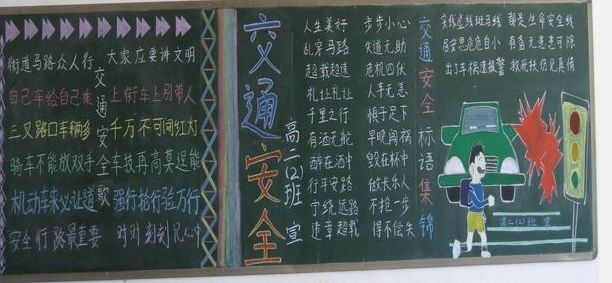 街道马路众人行 大家应要讲文明
自己车给自己乘 上街车上别带人
三叉路口车辆多 千万不可闯红灯
骑车不能放双手 车技再高莫逞能
机动车来必让道 强行抢行险万行
安全行路最重要 时时刻刻记心中
交通安全歌
交通安全
高二(2)班 宣
人生美好 步步小心
乱穿马路 失道无助
超载超速 危机四伏
礼让礼让 人手无恙
千里之行 慎于足下
有酒无舵 早晚闯祸
醉在酒中 毁在杯中
行平安路 做长乐人
宁绕远路 不抢一步
违章超载 得不偿失
交通安全标语集锦
实线虚线斑马线 都是生命安全线
居安思危危自小 有备无患患可除
出了车祸速报警 救死扶伤见真情
高二(2)班 宣